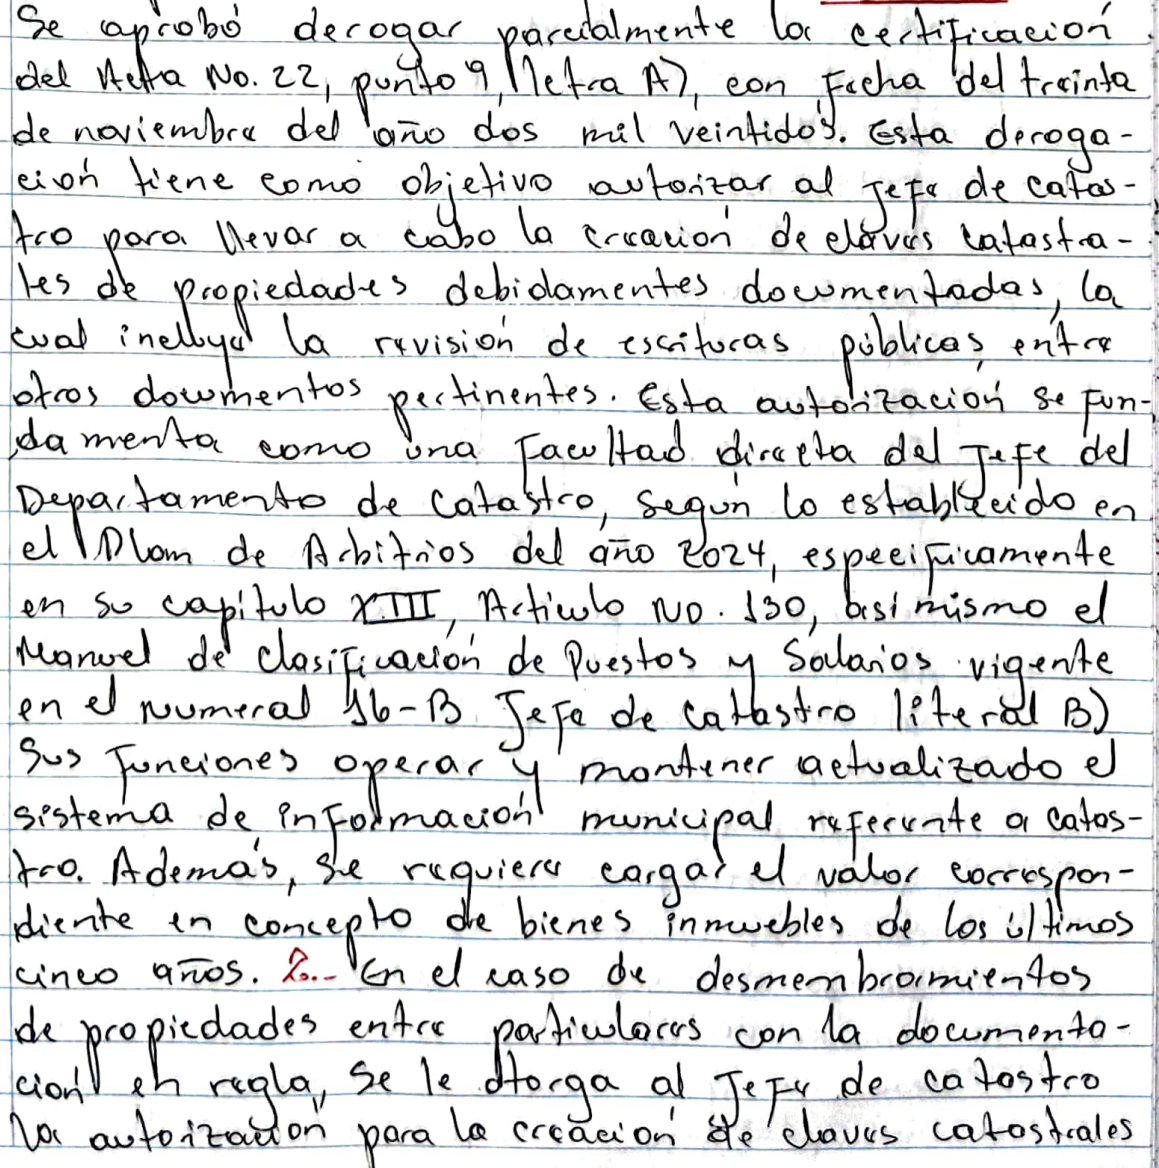 Se aprobó derogar parcialmente la certificación
del Acta No. 22, punto 9, letra A), con Fecha del treinta
de noviembre del año dos mil veintidós. Esta deroga-
ción tiene como objetivo autorizar al Jefe de catas-
tro para llevar a cabo la creación de claves catastra-
les de propiedades debidamentes documentadas, la
cual incluye la revisión de escrituras públicas entre
otros documentos pertinentes. Esta autorización se fun-
damenta como una Facultad directa del Jefe del
Departamento de Catastro, según lo establecido en
el Plam de Arbitrios del año 2024, especificamente
en su capítulo XIII, Articulo No. 130, asi mismo el
Manuel de Clasificación de Puestos y Salarios vigente
en el Numeral 16-B Jefe de Catastro literal B)
Sus Funciones operar y mantener actualizado el
sistema de información municipal referente a catas-
tro. Además, se requiere cargar el valor correspon-
diente en concepto de bienes inmuebles de los últimos
cinco años. 2.- En el caso de desmembramientos
de propiedades entre particulares con la documenta-
ción en regla, se le otorga al Jefe de catastro
la autorización para la creación de claves catastrales